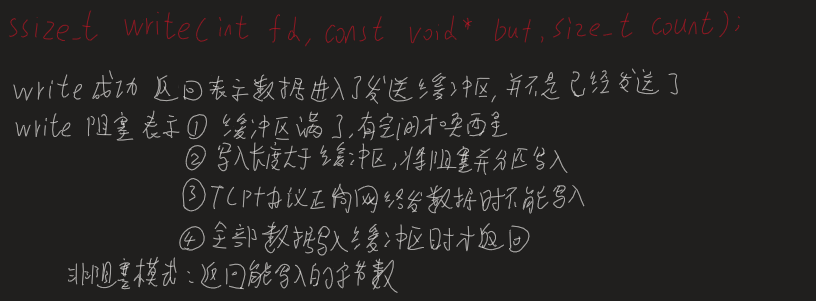 ssize_t write(int fd, const void* buf, size_t count);
write 成功 返回表示数据进入了发送缓冲区,并不是已经发送了
write 阻塞表示① 缓冲区满了,有空间才唤醒
② 写入长度大于缓冲区,将阻塞并分匹写入
③ TCP协议正向网络发数据时不能写入
④ 全部数据写入缓冲区时才返回
非阻塞模式:返回能写入的字节数